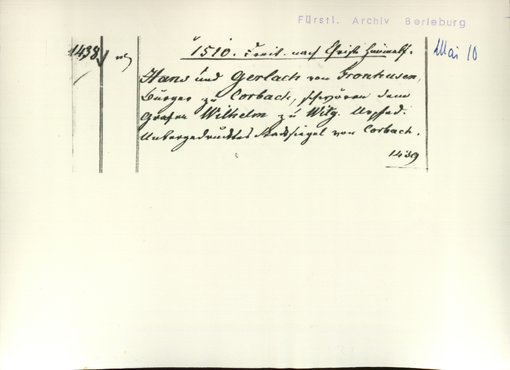 Fürstl. Archiv Berleburg
Mai 10
1438
1510. Freit. nach Christi Himmelf.
Hans und Gerlach von Fronhusen,
Bürger zu Corbach, schwören dem
Grafen Wilhelm zu Witg. Urfhed.
Untergedrucktes Stadtsiegel von Corbach.
1439